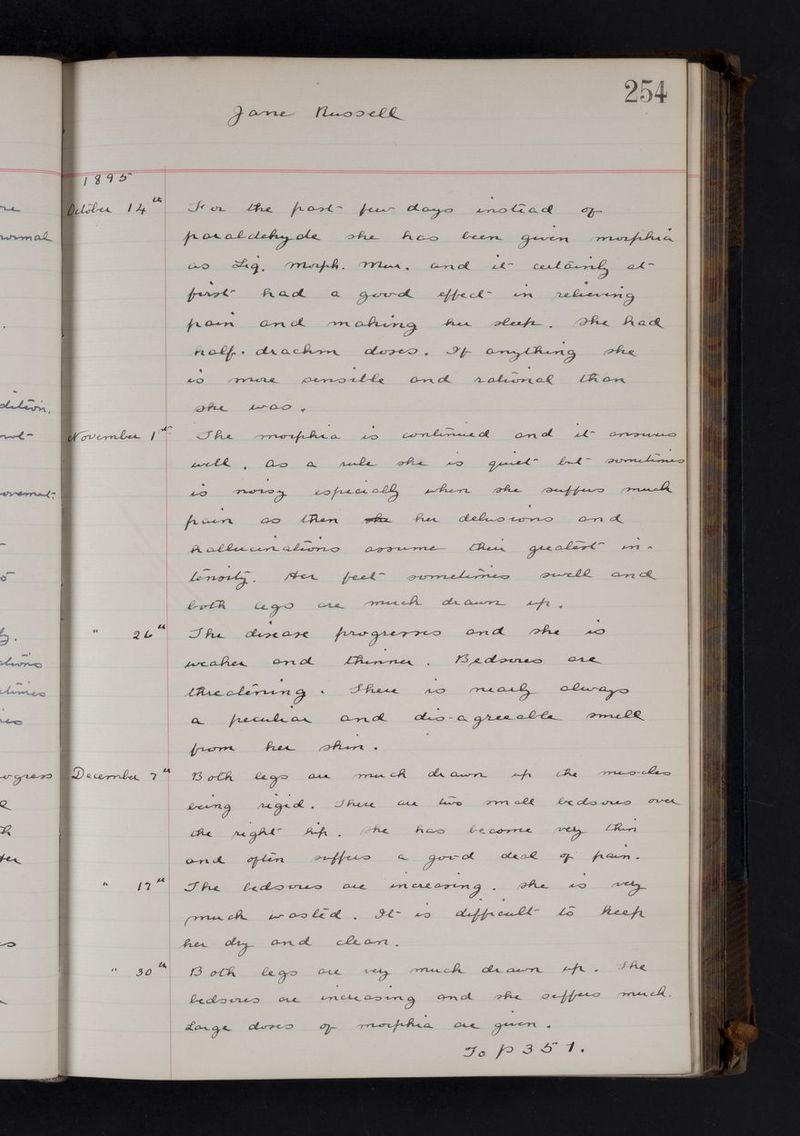 254
Jane Russell
1895
October 14th For the past few days instead of
paraldehyde she has been given morphia
as Liq. Morph. Mur. and it certainly at
first had a good effect in relieving
pain and making her sleep. She had
half. drachm doses. If anything she
is more sensible and rational than
she was.
November 1st The morphia is continued and it answers
well. As a rule she is quiet but sometimes
is noisy especially when she suffers much
pain as then she her delusions and
hallucinations assume their greatest in-
tensity. Her feet sometimes swell and
both legs are much drawn up.
" 26th The disease progresses and she is
weaker and thinner. Bedsores are
threatening. There is nearly always
a peculiar and dis-agreeable smell
from her skin.
December 7th Both legs are much drawn up the muscles
being rigid. There are two small bedsores over
the right hip. She has become very thin
and often suffers a good deal of pain.
" 17th The bedsores are increasing. She is very
much wasted. It is difficult to keep
her dry and clean.
" 30th Both legs are very much drawn up. The
bedsores are increasing and she suffers much.
Large doses of morphia are given.
To p 351.